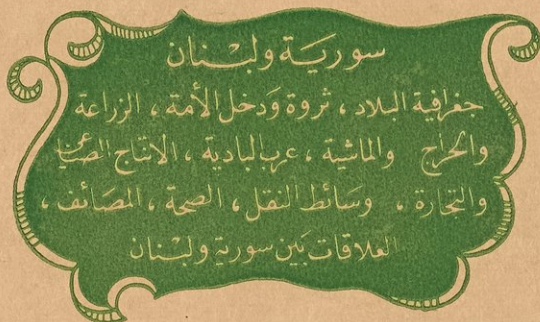 سورية ولبنان
جغرافية البلاد ، ثروة وَدخل الأمة ، الزراعة
والحراج والماشية ، عرب البادية ، الانتاج الصناعي
والتجارة ، وسَائط النقل ، الصحة ، المصَائف ،
العلاقات بَين سورية ولبنان